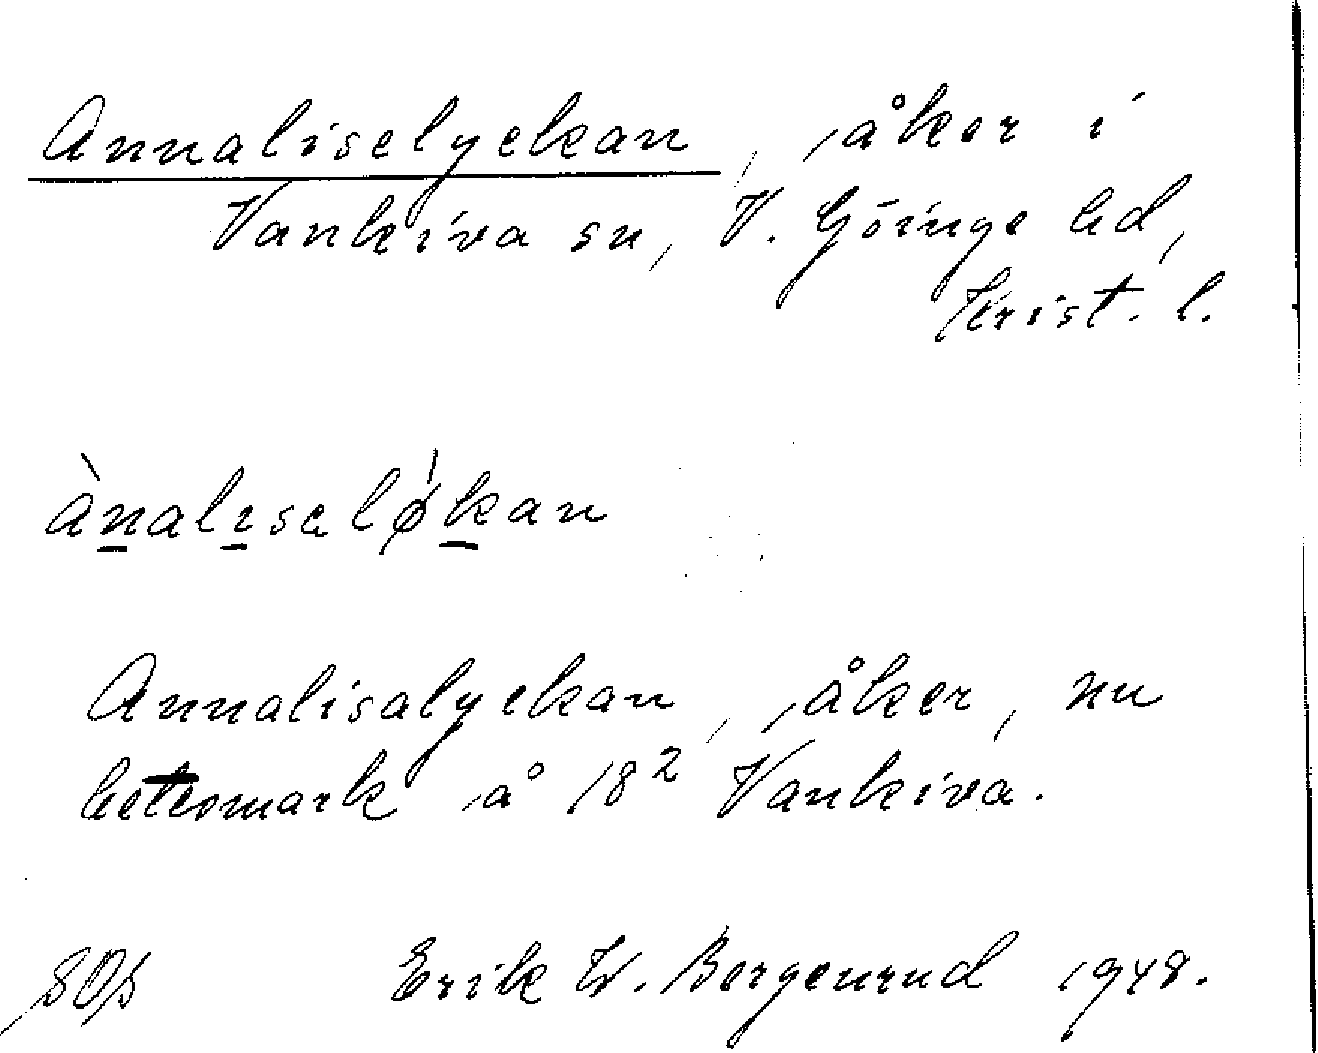 Anneliselyckan, åker i
Vankiva sn, V. Göinge hd,
Krist. l.
ànalisəløkan
Annalisalyckan, åker, nu
betesmark å 18² Vankiva.
Erik W. Bergenrud 1948.